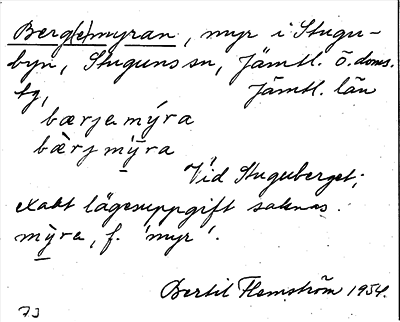 Berg(e)myran, myr i Stugu-
byn, Stuguns sn, Jämtl. ö. doms.
tg, Jämtl. län
bærje mýra
bæ̀rj mýra
Vid Stuguberget;
exakt lägesuppgift saknas.
mỳra, f. 'myr'.
Bertil Flemström 1954.
73